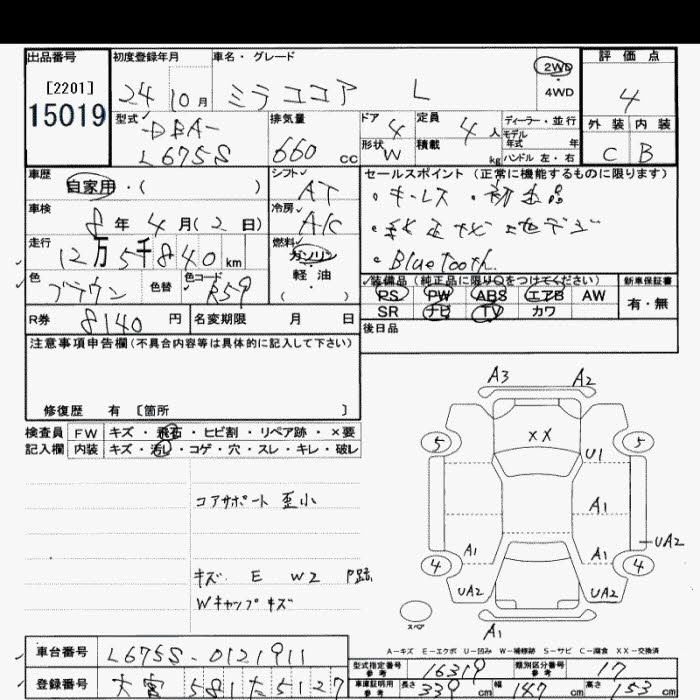 出品番号
[2201]
15019
初度登録年月
24 10月
車名・グレード
ミラココア L
2WD
4WD
評価点
4
型式
-DBA-
L675S
排気量
660 cc
ドア
4
形状
W
定員
4 人
積載
kg
ディーラー・並行
モデル
年式 年
ハンドル 左・右
外装 内装
C B
車歴
自家用・( )
シフト
AT
セールスポイント (正常に機能するものに限ります)
・キーレス・初
・
・BlueTooth.
車検
8年 4月(2日)
冷房
A/C
走行
12万5千840 km
燃料
ガソリン
軽・油
( )
色
ブラウン
色替
色コード
R59
装備品 (純正品に限り○をつけてください)
新車保証書
PS PW ABS エアB AW
有・無
SR ナビ TV カワ
R券
8140 円
名変期限 月 日
後日品
注意事項申告欄(不具合内容等は具体的に記入して下さい)
修復歴 有 [箇所 ]
検査員 FW キズ・飛石・ヒビ割・リペア跡・×要
記入欄 内装 キズ・汚れ・コゲ・穴・スレ・キレ・破レ
コアサポート 歪小
キズ E W2 P跡
Wキャップキズ
A3 A2
5 XX 5
U1
A1
UA2
A1 A1
4 4
UA2 UA2
スペア
A1
A-キズ E-エクボ U-凹み W-補修跡 S-サビ C-腐食 XX-交換済
車台番号
L675S-0121911
登録番号
大宮 581 た 5127
型式指定番号
参考
16319
類別区分番号
参考
17
車庫証明用
参考
長さ 339 cm 幅 147 cm 高さ 153 cm